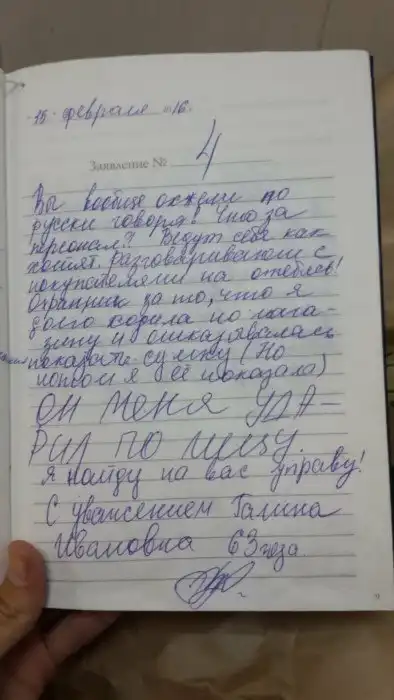 15 февраля 16.
Заявление № 4
Вы вообще охжели по
русски говоря! Что за
персонал?! Ведут себя как
хотят, разговаривают с
покупателями на отебись!
Охранник за то, что я
долго ходила по мага-
зину и отказывалась
показать сумку (Но
потом я её показала)
ОН МЕНЯ УДА-
РИЛ ПО ЛИЦУ.
Я найду на вас управу!
С уважением Галина
Ивановна 63 года